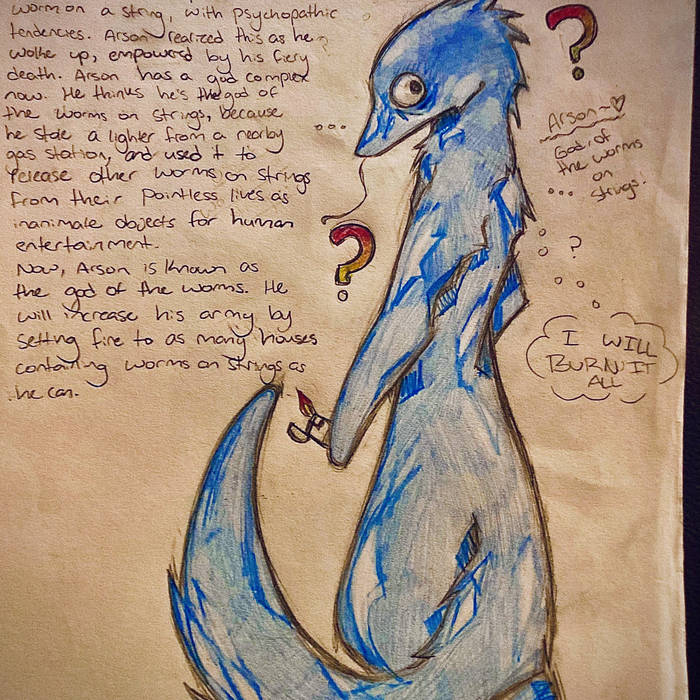 worm on a string, with psychopathic
tendencies. Arson realized this as he
woke up, empowered by his fiery
death. Arson has a god complex
now. He thinks he's the god of
the worms on strings, because
he stole a lighter from a nearby
gas station, and used it to
release other worms on strings
from their pointless lives as
inanimate objects for human
entertainment.
Now, Arson is known as
the god of the worms. He
will increase his army by
setting fire to as many houses
containing worms on strings as
he can.
...
?
?
Arson~♡
God, of
the worms
on
strings!
...
?
I WILL
BURN IT
ALL